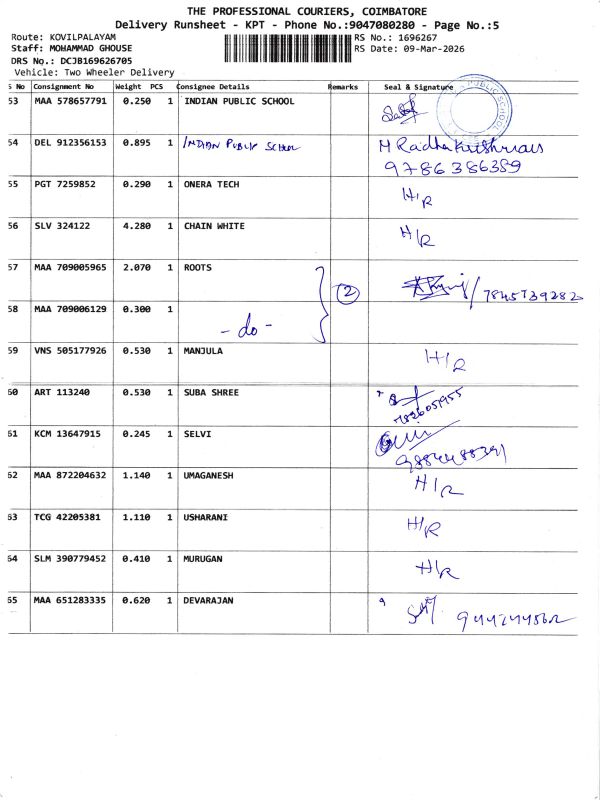 THE PROFESSIONAL COURIERS, COIMBATORE
Delivery Runsheet - KPT - Phone No.:9047080280 - Page No.:5
Route: KOVILPALAYAM RS No.: 1696267
Staff: MOHAMMAD GHOUSE RS Date: 09-Mar-2026
DRS No.: DCJB169626705
Vehicle: Two Wheeler Delivery
S No Consignment No Weight PCS Consignee Details Remarks Seal & Signature
53 MAA 578657791 0.250 1 INDIAN PUBLIC SCHOOL PUBLIC SCHOOL
54 DEL 912356153 0.895 1 INDIAN PUBLIC SCHOOL M Radha Krishnan
9786386359
55 PGT 7259852 0.290 1 ONERA TECH H/R
56 SLV 324122 4.280 1 CHAIN WHITE H/R
57 MAA 709005965 2.070 1 ROOTS 2 / 7845739282
58 MAA 709006129 0.300 1 - do -
59 VNS 505177926 0.530 1 MANJULA H/R
60 ART 113240 0.530 1 SUBA SHREE
61 KCM 13647915 0.245 1 SELVI
62 MAA 872204632 1.140 1 UMAGANESH H/R
63 TCG 42205381 1.110 1 USHARANI H/R
64 SLM 390779452 0.410 1 MURUGAN H/R
65 MAA 651283335 0.620 1 DEVARAJAN